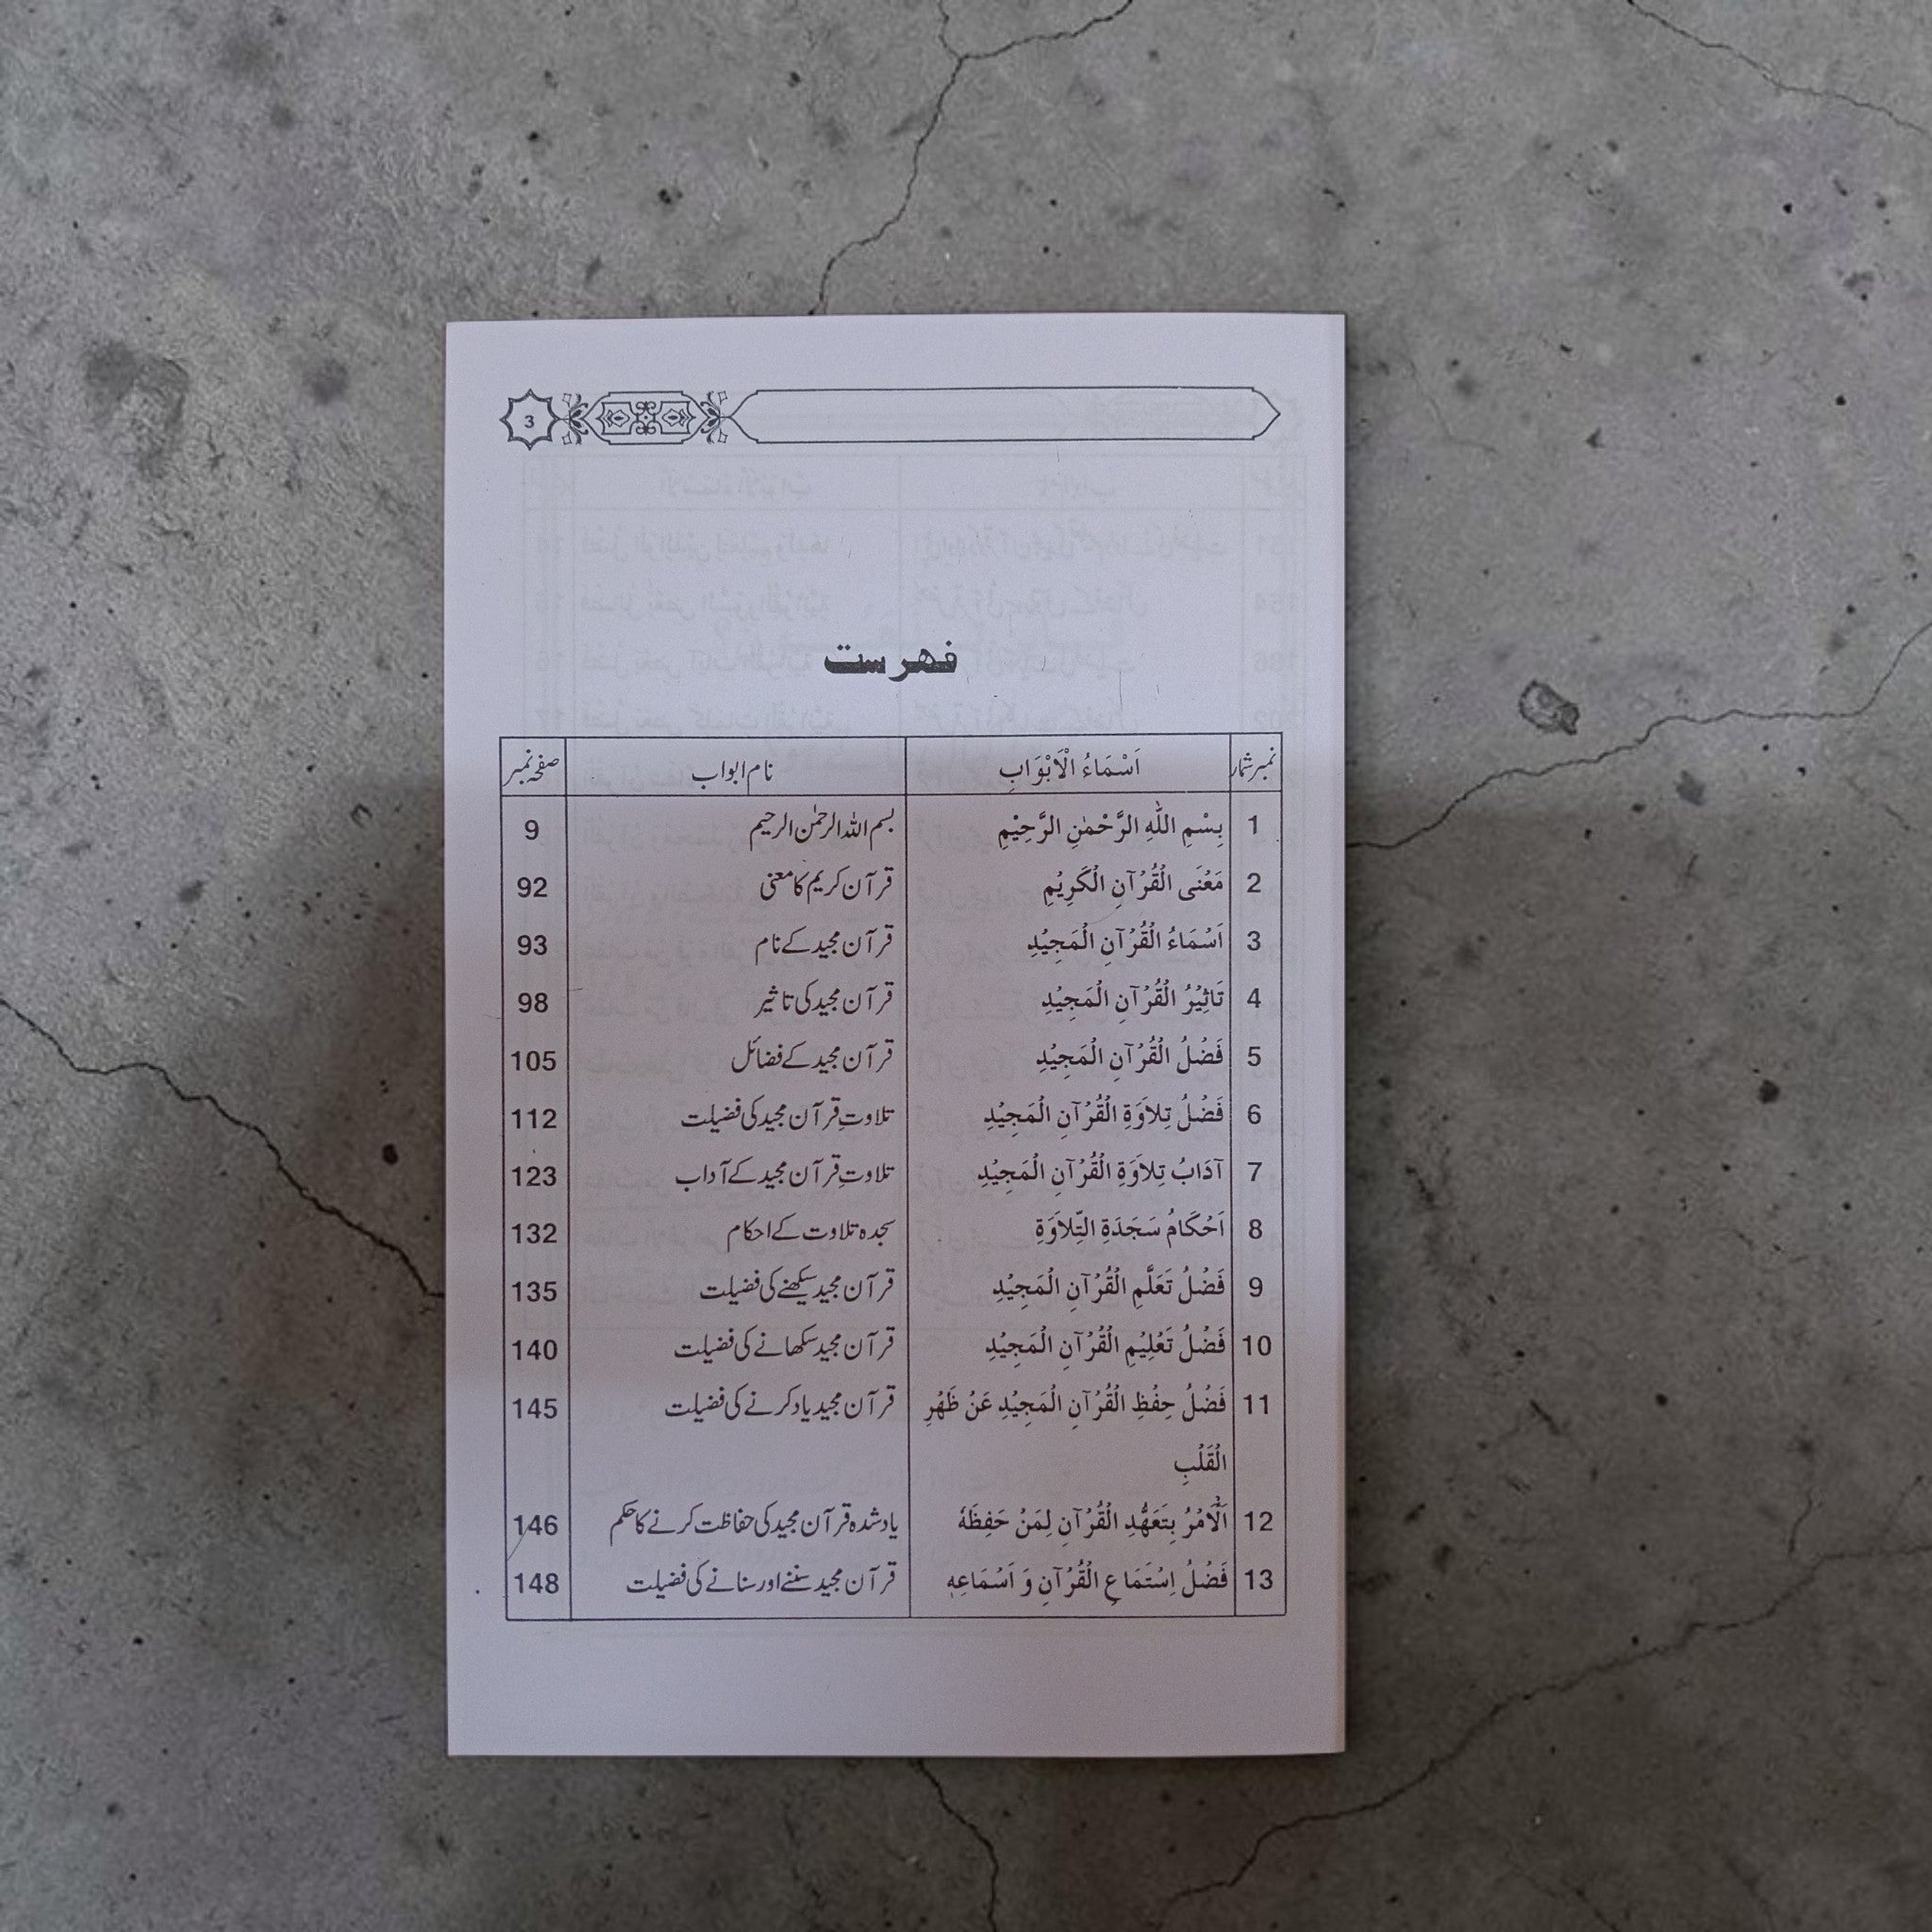 3
فهرست
نمبر شمار اَسْمَاءُ الْاَبْوَابِ نام ابواب صفحہ نمبر
1 بِسْمِ اللّٰهِ الرَّحْمٰنِ الرَّحِيْمِ بسم اللہ الرحمٰن الرحیم 9
2 مَعْنَى الْقُرْآنِ الْكَرِيْمِ قرآن کریم کا معنی 92
3 اَسْمَاءُ الْقُرْآنِ الْمَجِيْدِ قرآن مجید کے نام 93
4 تَاثِيْرُ الْقُرْآنِ الْمَجِيْدِ قرآن مجید کی تاثیر 98
5 فَضْلُ الْقُرْآنِ الْمَجِيْدِ قرآن مجید کے فضائل 105
6 فَضْلُ تِلاَوَةِ الْقُرْآنِ الْمَجِيْدِ تلاوتِ قرآن مجید کی فضیلت 112
7 آدَابُ تِلاَوَةِ الْقُرْآنِ الْمَجِيْدِ تلاوتِ قرآن مجید کے آداب 123
8 اَحْكَامُ سَجَدَةِ التِّلاَوَةِ سجدہ تلاوت کے احکام 132
9 فَضْلُ تَعَلَّمِ الْقُرْآنِ الْمَجِيْدِ قرآن مجید سیکھنے کی فضیلت 135
10 فَضْلُ تَعْلِيْمِ الْقُرْآنِ الْمَجِيْدِ قرآن مجید سکھانے کی فضیلت 140
11 فَضْلُ حِفْظِ الْقُرْآنِ الْمَجِيْدِ عَنْ ظَهْرِ قرآن مجید یاد کرنے کی فضیلت 145
الْقَلْبِ
12 اَلْاَمْرُ بِتَعَهُّدِ الْقُرْآنِ لِمَنْ حَفِظَهٗ یاد شدہ قرآن مجید کی حفاظت کرنے کا حکم 146
13 فَضْلُ اِسْتَمَاعِ الْقُرْآنِ وَ اَسْمَاعِهٖ قرآن مجید سننے اور سنانے کی فضیلت 148